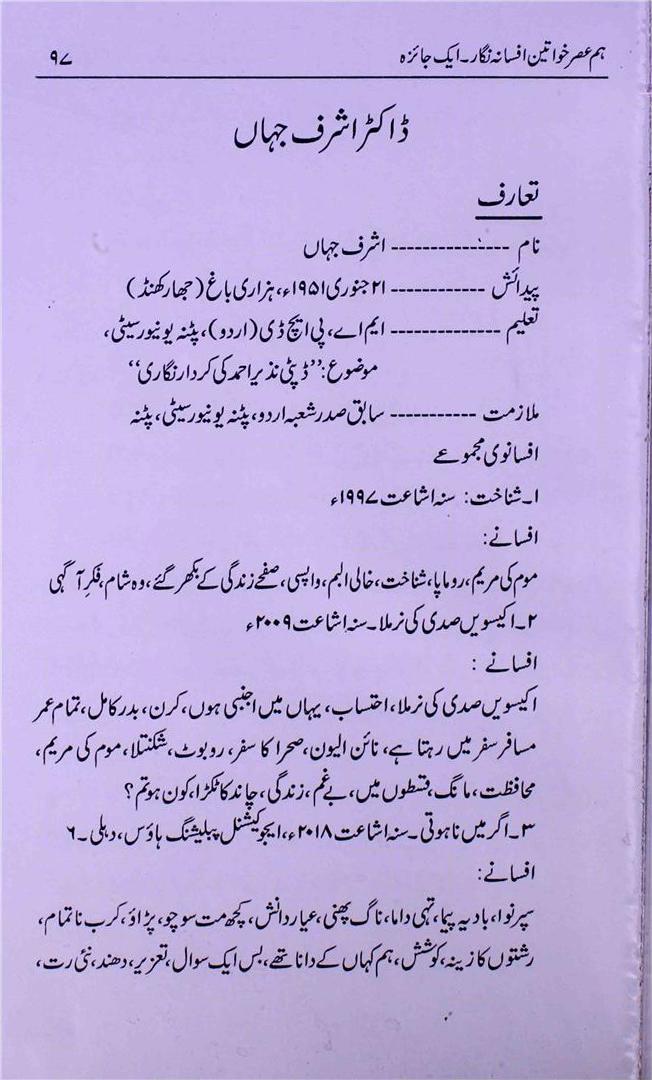 ہم عصر خواتین افسانہ نگار۔ ایک جائزہ ۹۷
ڈاکٹر اشرف جہاں
تعارف
نام --------------- اشرف جہاں
پیدائش ------------ ۲۱ جنوری ۱۹۵۱ء، ہزاری باغ (جھارکھنڈ)
تعلیم -------------- ایم اے، پی ایچ ڈی (اردو)، پٹنہ یونیورسیٹی،
موضوع: ’’ڈپٹی نذیر احمد کی کردار نگاری‘‘
ملازمت ----------- سابق صدر شعبہ اردو، پٹنہ یونیورسیٹی، پٹنہ
افسانوی مجموعے
۱۔ شناخت: سنہ اشاعت ۱۹۹۷ء
افسانے:
موم کی مریم، روما پا، شناخت، خالی البم، واپسی، صفحے زندگی کے بکھر گئے، وہ شام، فکرِ آگہی
۲۔ اکیسویں صدی کی نرملا۔ سنہ اشاعت ۲۰۰۹ء
افسانے :
اکیسویں صدی کی نرملا، احتساب، یہاں میں اجنبی ہوں، کرن، بدر کامل، تمام عمر
مسافر سفر میں رہتا ہے، نائن الیون، صحرا کا سفر، روبوٹ، شکنتلا، موم کی مریم،
محافظت، مانگ، قسطوں میں، بے غم، زندگی، چاند کا ٹکڑا، کون ہو تم؟
۳۔ اگر میں نا ہوتی۔ سنہ اشاعت ۲۰۱۸ء، ایجوکیشنل پبلیشنگ ہاؤس، دہلی۔ ۶
افسانے:
سپر نوا، بادیہ پیما، تہی داما، ناگ پھنی، عیار دانش، کچھ مت سوچو، پڑاؤ، کرب ناتمام،
رشتوں کا زینہ، کوشش، ہم کہاں کے دانا تھے، بس ایک سوال، تعزیر، دھند، نئی رت،